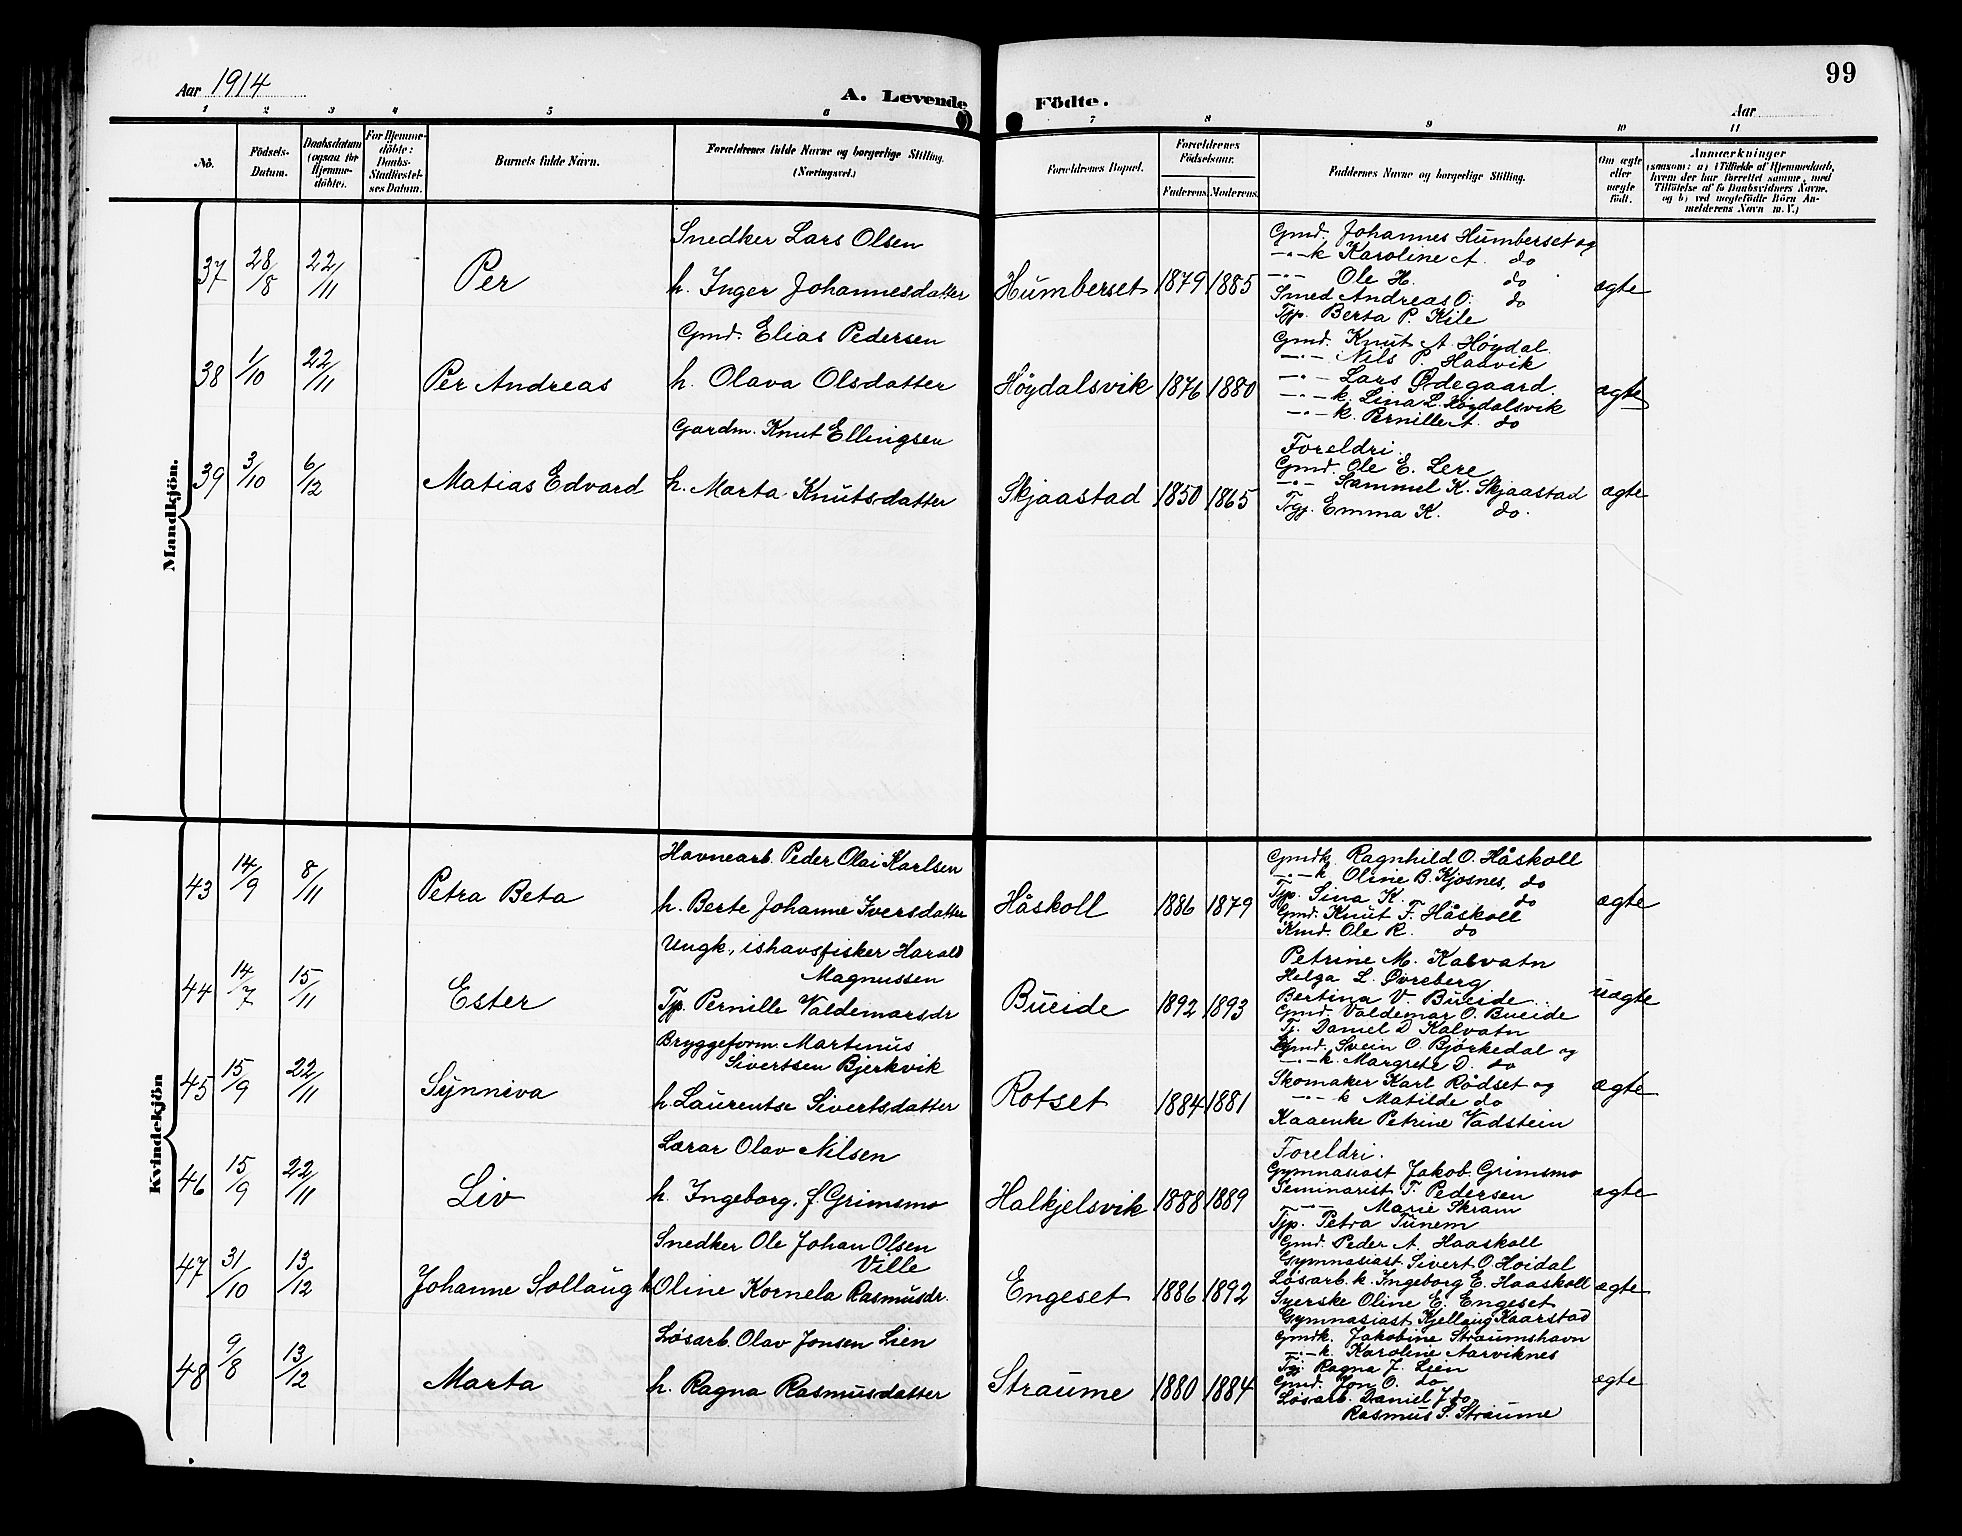 99
Aar 1914
A. Levende Födte.
Aar
1 2 3 4 5 6 7 8 9 10 11
No.
Födsels-Datum.
Daabsdatum (ogsaa for Hjemme-döbte).
For Hjemme-döbte: Daabs-Stadfæstel-ses Datum.
Barnets fulde Navn.
Forældrenes fulde Navne og borgerlige Stilling. (Næringsvei.)
Forældrenes Bopæl.
Forældrenes Födselsaar.
Faderens. Moderens.
Faddernes Navne og borgerlige Stilling.
Om ægte eller uægte födt.
Anmærkninger
(saasom: a) i Tilfælde af Hjemmedaab, hvem der har forrettet samme, med Tilföielse af to Daabsvidners Navne, og b) ved uægtefödte Börn An-melderens Navn m. V.)
Mandkjön.
37 28/8 22/11 Per
Snedker Lars Olsen
h. Inger Johannesdatter
Humberset 1879 1885
Gmd. Johannes Humberset og
—"—k Karoline A. do
—"— Ole H. do
Smed Andreas O. do
Tjp. Berta P. Kile
ægte
38 1/10 22/11 Per Andreas
Gmd. Elias Pedersen
h. Olava Olsdatter
Höydalsvik 1876 1880
Gmd. Knut A. Høydal
—"— Nils P. Haavik
—"— Lars Ødegaard
—"—k. Lina L. Høydalsvik
—"—k. Pernille A. do
ægte
39 3/10 6/12 Matias Edvard
Gardm. Knut Ellingsen
h. Marta Knutsdatter
Skjaastad 1850 1865
Foreldri.
Gmd. Ole E. Lere
—"— Sammul K. Skjaastad
Tgj. Emma K. do.
ægte
Kvindekjön
43 14/9 8/11 Petra Beta
Havnearb. Peder Olai Karlsen
h. Berte Johanne Iversdatter
Håskoll 1886 1879
Gmdk. Ragnhild O. Håskoll
—"—k Oline B. Kjosnes, do
Tjp. Sina K. do
Gmd. Knut F. Håskoll
Kmd. Ole R. do
ægte
44 14/7 15/11 Ester
Ungk., ishavsfisker Harald
Magnussen
Tjp. Pernille Valdemarsdr
Bueide 1892 1893
Petrine M. Kalvatn
Helga L. Øvreberg
Bertina V. Bueide
Gmd. Valdemar O. Bueide
Tj. Daniel D Kalvatn
uægte
45 15/9 22/11 Synniva
Bryggeform. Martinus
Sivertsen Bjerkvik
h. Laurentse Sivertsdatter
Rotset 1884 1881
Gmd. Svein O. Bjørkedal og
—"—k. Margrete D. do
Skomaker Karl Rødset og
—"—k Matilde do
Kaaenke Petrine Vadstein
ægte
46 15/9 22/11 Liv
Lærar Olav Nilsen
h. Ingeborg, f. Grimsmo
Halkjelsvik 1888 1889
Foreldri.
Gymnasiast Jakob Grimsmo
Seminarist T. Pedersen
—"— Marie Skram
Tjp. Petra Tunem
ægte
47 31/10 13/12 Johanne Sollaug
Snedker Ole Johan Olsen
Ville
h Oline Kornela Rasmusdr.
Engeset 1886 1892
Gmd. Peder A. Haaskoll
Gymnasiast Sivert O Hoidal
Løsarb. k. Ingeborg E. Haaskoll
Syerske Oline E. Engeset
Gymnasiast Kjellaug Kaarstad
ægte
48 9/8 13/12 Marta
Løsarb. Olav Jonsen Lien
h. Ragna Rasmusdatter
Straume 1880 1884
Gmdk. Jakobine Straumshavn
—"—k. Karoline Aarviknes
Tgj. Ragna J. Lien
Gmd. Jon O. do
Løsarb. Daniel J do
Rasmus S. Straume
ægte